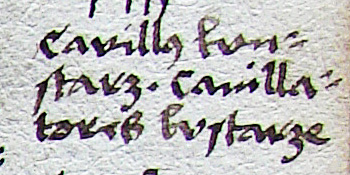 Cauillꝯ kun-
starz. Cauilla-
toris kvstarze